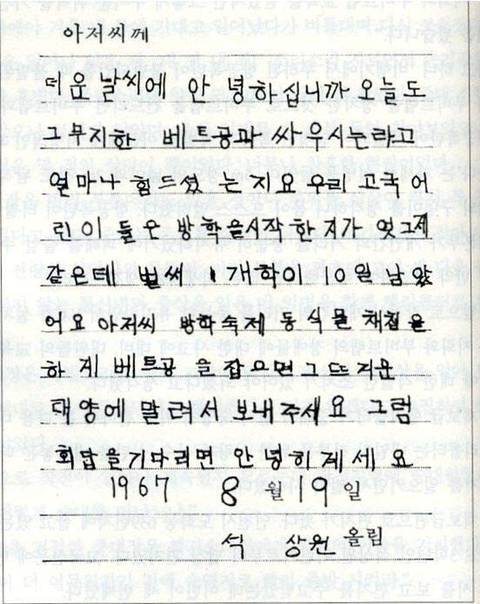 아저씨께
더운 날씨에 안녕하십니까 오늘도
그무지한 베트콩과 싸우시는라고
얼마나 힘드셨는지요 우리 고국 어
린이들은 방학을시작한지가 엇그제
같은데 벌써 개학이 10일 남았
어요 아저씨 방학숙제 동식물 채집을
하게 베트콩을 잡으면 그 뜨거운
태양에 말려서 보내주세요 그럼
회답을기다리면 안녕히 계세요
1967 8월 19일
석 상원 올림